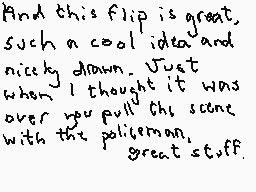 And this flip is great,
such a cool idea and
nicely drawn. Just
when I thought it was
over you pull this scene
with the policeman,
great stuff.